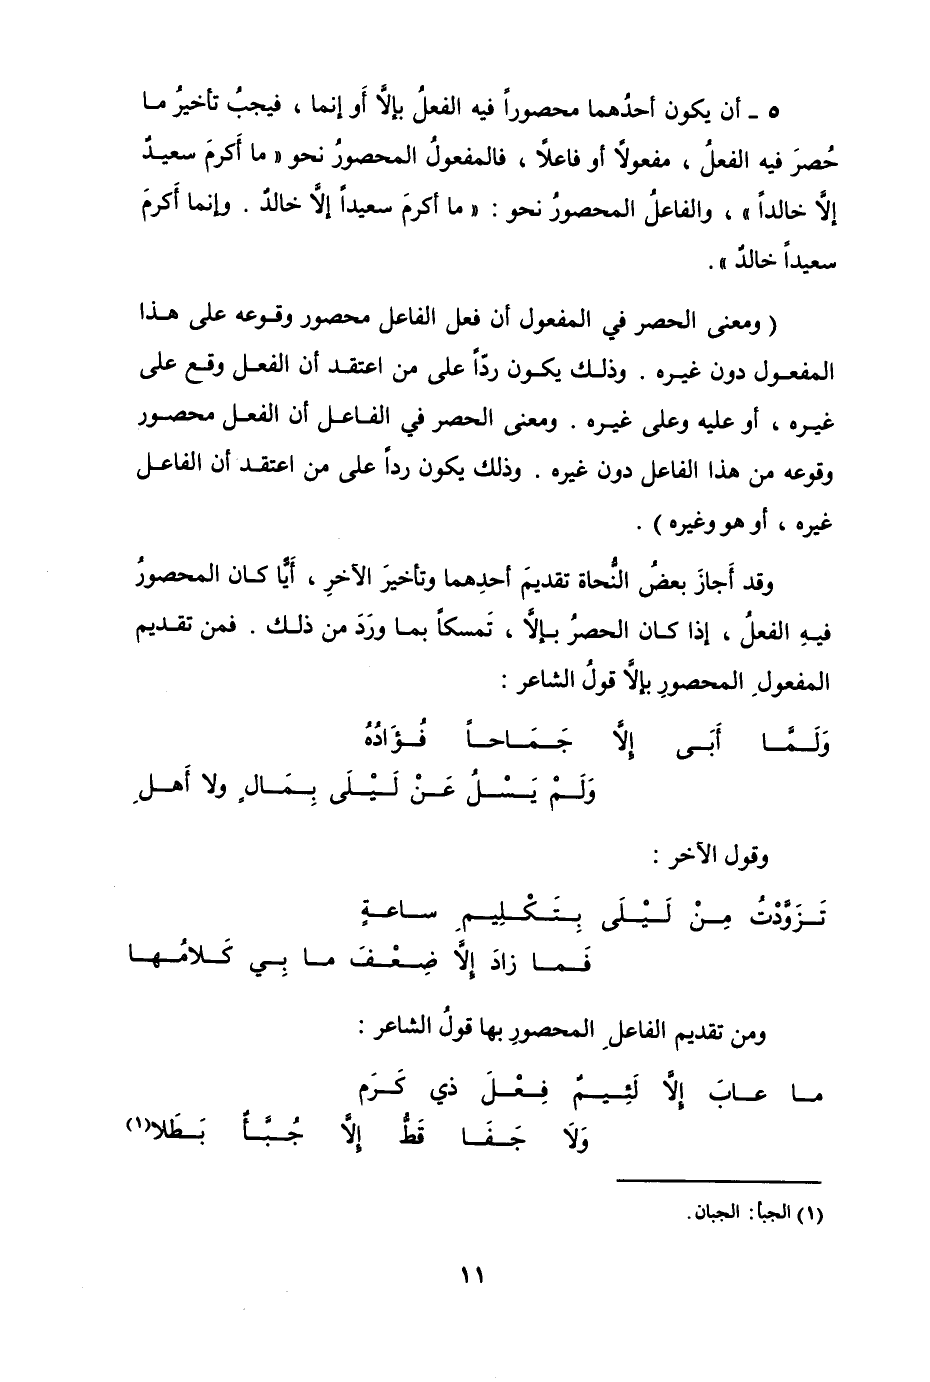 ٥ ـ أن يكون أحدُهما محصوراً فيه الفعلُ بإلاَّ أَو إنما ، فيجبُ تأخيرُ ما
حُصرَ فيه الفعلُ ، مفعولاً أو فاعلاً ، فالمفعولُ المحصورُ نحو « ما أَكرمَ سعيدٌ
إلاَّ خالداً » ، والفاعلُ المحصورُ نحو : « ما أكرمَ سعيداً إلاَّ خالدٌ . وإنما أَكرمَ
سعيداً خالدٌ » .
( ومعنى الحصر في المفعول أن فعل الفاعل محصور وقوعه على هذا
المفعول دون غيره . وذلك يكون ردّاً على من اعتقد أن الفعل وقع على
غيره ، أو عليه وعلى غيره . ومعنى الحصر في الفاعل أن الفعل محصور
وقوعه من هذا الفاعل دون غيره . وذلك يكون رداً على من اعتقد أن الفاعل
غيره ، أو هو وغيره ) .
وقد أَجازَ بعضُ النُّحاة تقديمَ أحدِهما وتأخيرَ الآخرِ ، أَيًّا كان المحصورُ
فيهِ الفعلُ ، إذا كان الحصرُ بإلاَّ ، تَمسكاً بما ورَدَ من ذلك . فمن تقديم
المفعولِ المحصورِ بإلاَّ قولُ الشاعر :
وَلَمَّا أَبَى إِلاَّ جَمَاحاً فُؤَادُهُ
وَلَمْ يَسْلُ عَنْ لَيْلَى بِمَالٍ ولا أَهلِ
وقول الآخر :
تَزَوَّدْتُ مِنْ لَيْلَى بِتَكْلِيمِ ساعةٍ
فَما زادَ إلاَّ ضِعْفَ ما بِي كَلامُها
ومن تقديم الفاعلِ المحصورِ بها قولُ الشاعر :
ما عابَ إلاَّ لَئِيمٌ فِعْلَ ذي كَرَم
وَلاَ جَفَا قَطُّ إلاَّ جُبَّأٌ بَطَلا(١)
(١) الجبأ: الجبان .
١١